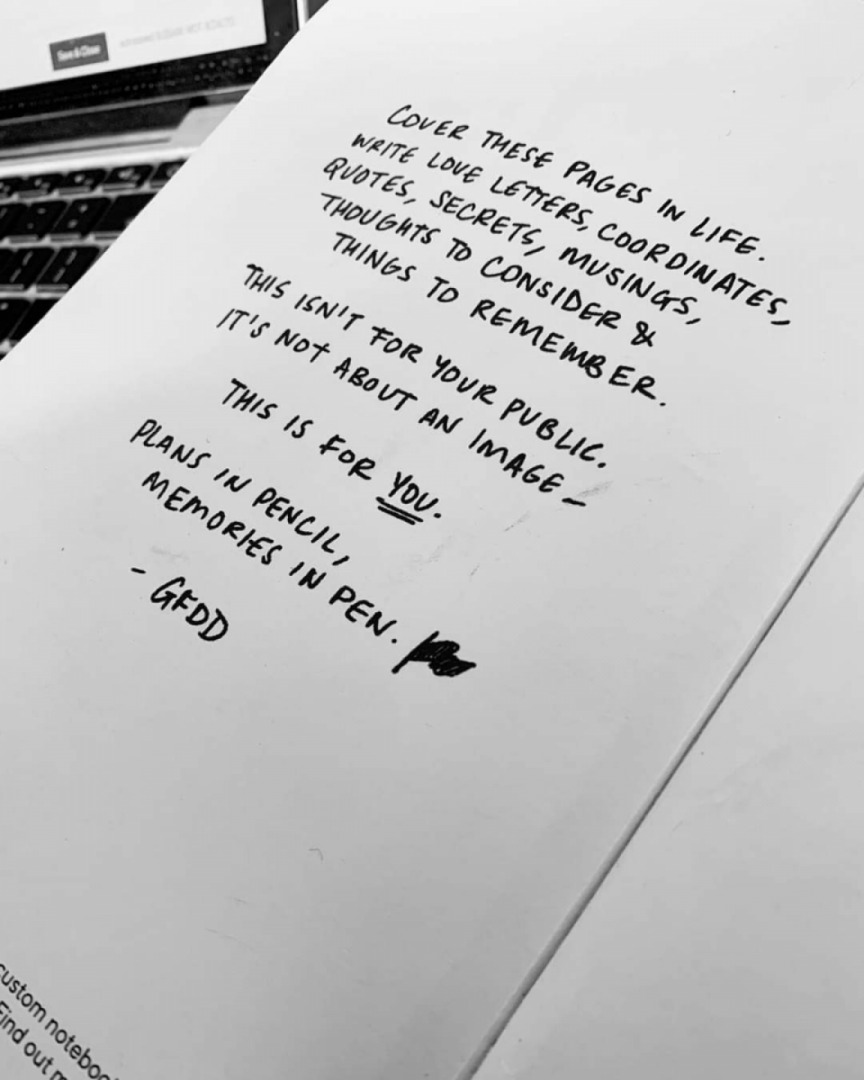 Save & Close
COVER THESE PAGES IN LIFE.
WRITE LOVE LETTERS, COORDINATES,
QUOTES, SECRETS, MUSINGS,
THOUGHTS TO CONSIDER &
THINGS TO REMEMBER.
THIS ISN'T FOR YOUR PUBLIC.
IT'S NOT ABOUT AN IMAGE—
THIS IS FOR YOU.
PLANS IN PENCIL,
MEMORIES IN PEN.
- GFDD
custom
Find out